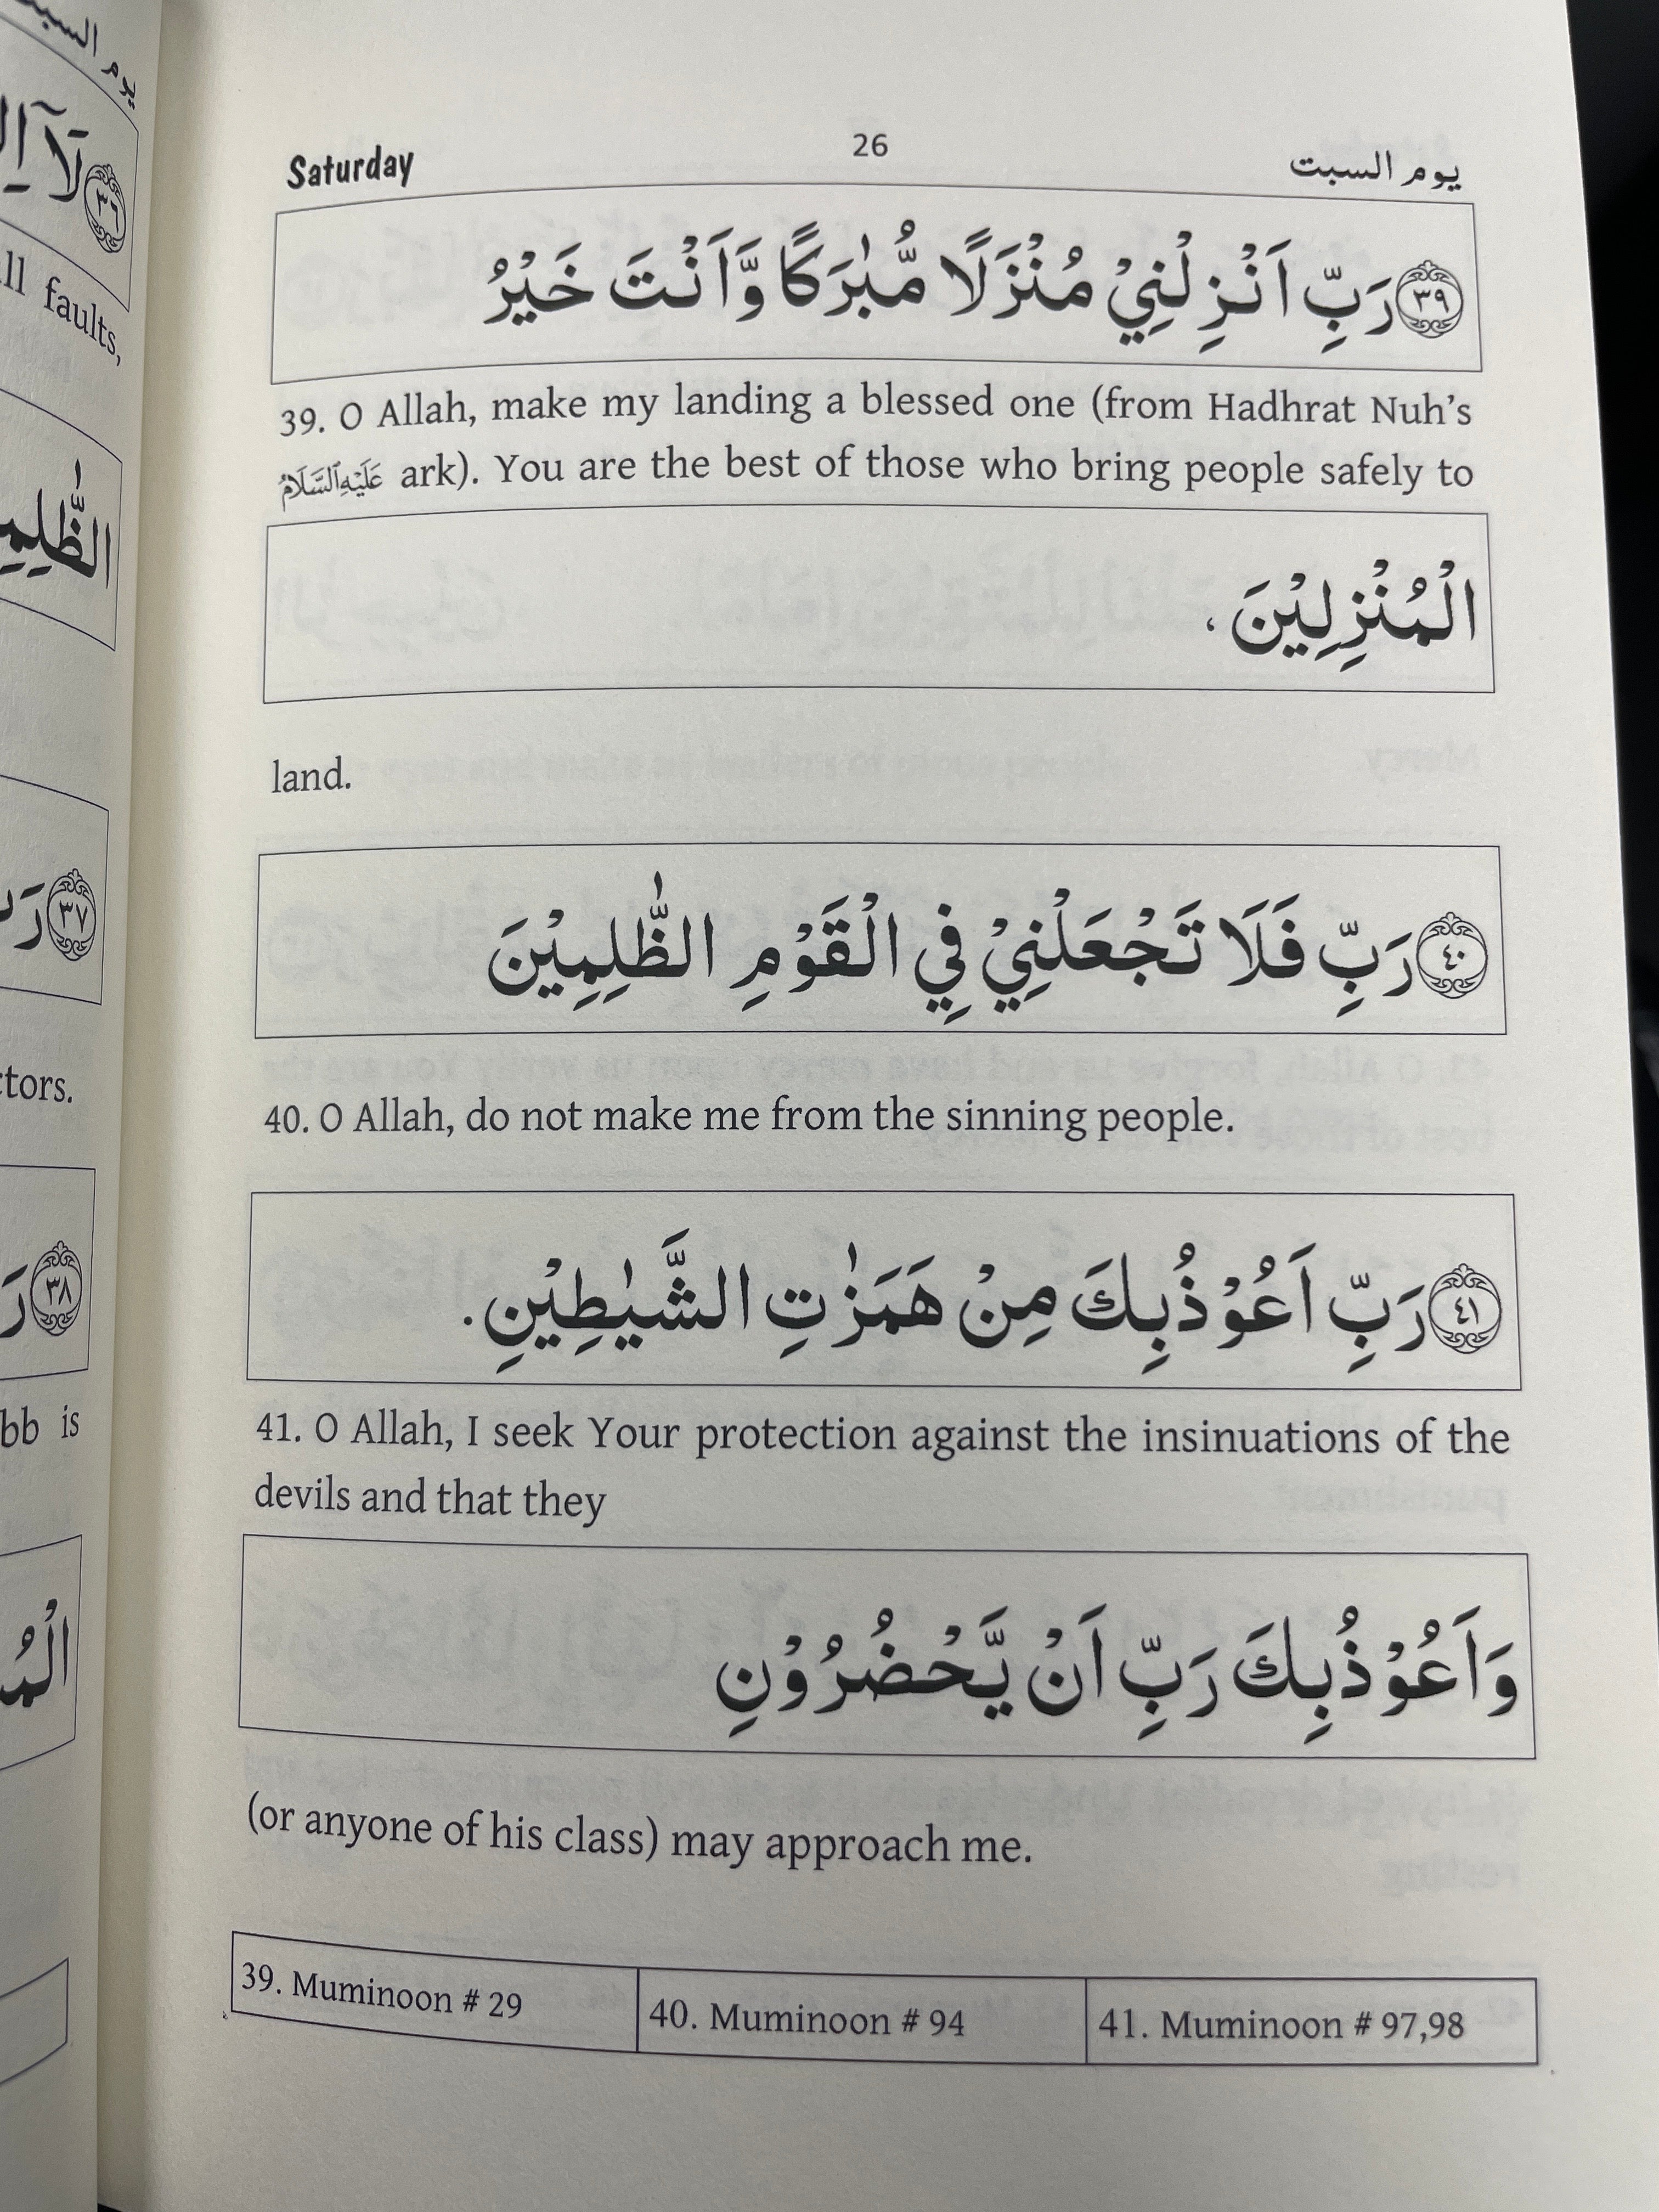 Saturday 26 يوم السبت
٣٩ رَبِّ اَنْزِلْنِيْ مُنْزَلًا مُّبٰرَكًا وَّاَنْتَ خَيْرُ
39. O Allah, make my landing a blessed one (from Hadhrat Nuh's
عَلَيْهِ السَّلَامُ ark). You are the best of those who bring people safely to
الْمُنْزِلِيْنَ ،
land.
٤٠ رَبِّ فَلَا تَجْعَلْنِيْ فِي الْقَوْمِ الظّٰلِمِيْنَ
40. O Allah, do not make me from the sinning people.
٤١ رَبِّ اَعُوْذُبِكَ مِنْ هَمَزٰتِ الشَّيٰطِيْنِ.
41. O Allah, I seek Your protection against the insinuations of the
devils and that they
وَاَعُوْذُبِكَ رَبِّ اَنْ يَّحْضُرُوْنِ
(or anyone of his class) may approach me.
39. Muminoon # 29 40. Muminoon # 94 41. Muminoon # 97,98
يوم السبت
٣٦ لَآ
ll faults,
٣٧
ctors.
٣٨
bb is